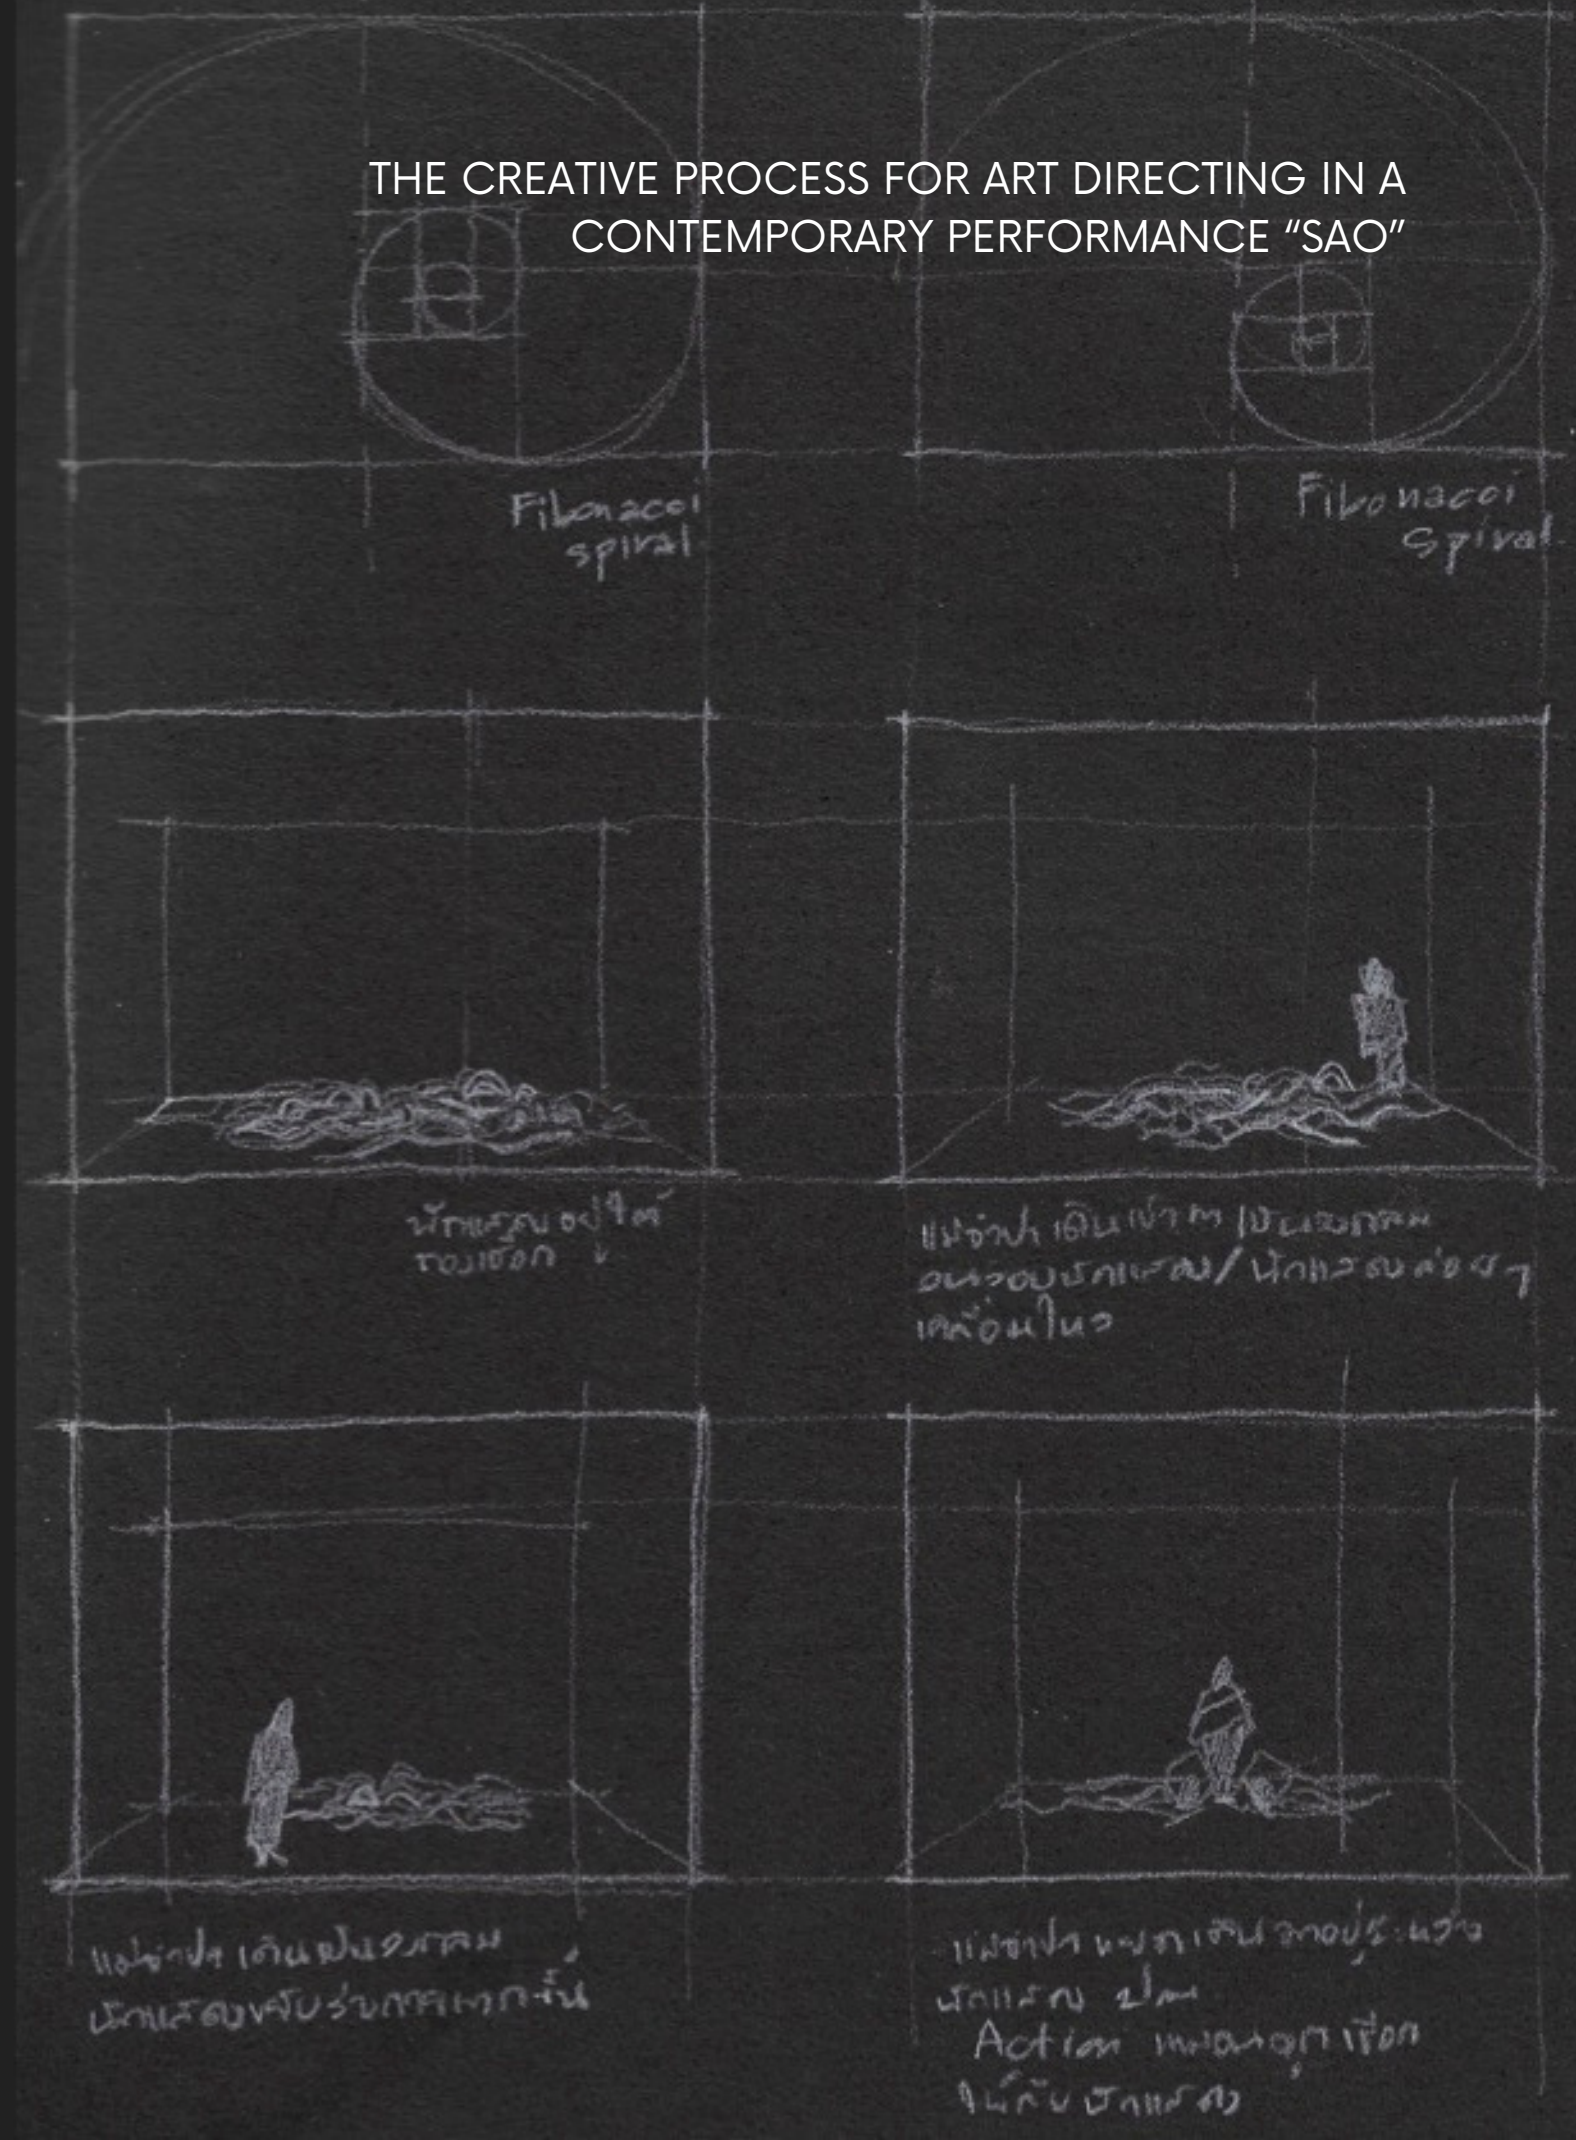 THE CREATIVE PROCESS FOR ART DIRECTING IN A
CONTEMPORARY PERFORMANCE “SAO”
Fibonacci
spiral
Fibonacci
Spiral
นักแสดงอยู่ใต้
กองเชือก
แม่จำปา เดินเข้ามา เป็นวงกลม
นักแสดง / นักแสดงค่อย ๆ
เคลื่อนไหว
แม่จำปา เดินเป็นวงกลม
นักแสดงขยับร่างกายมากขึ้น
แม่จำปา หยุดเดิน
นักแสดง
Action เชือก
ให้กับนักแสดง